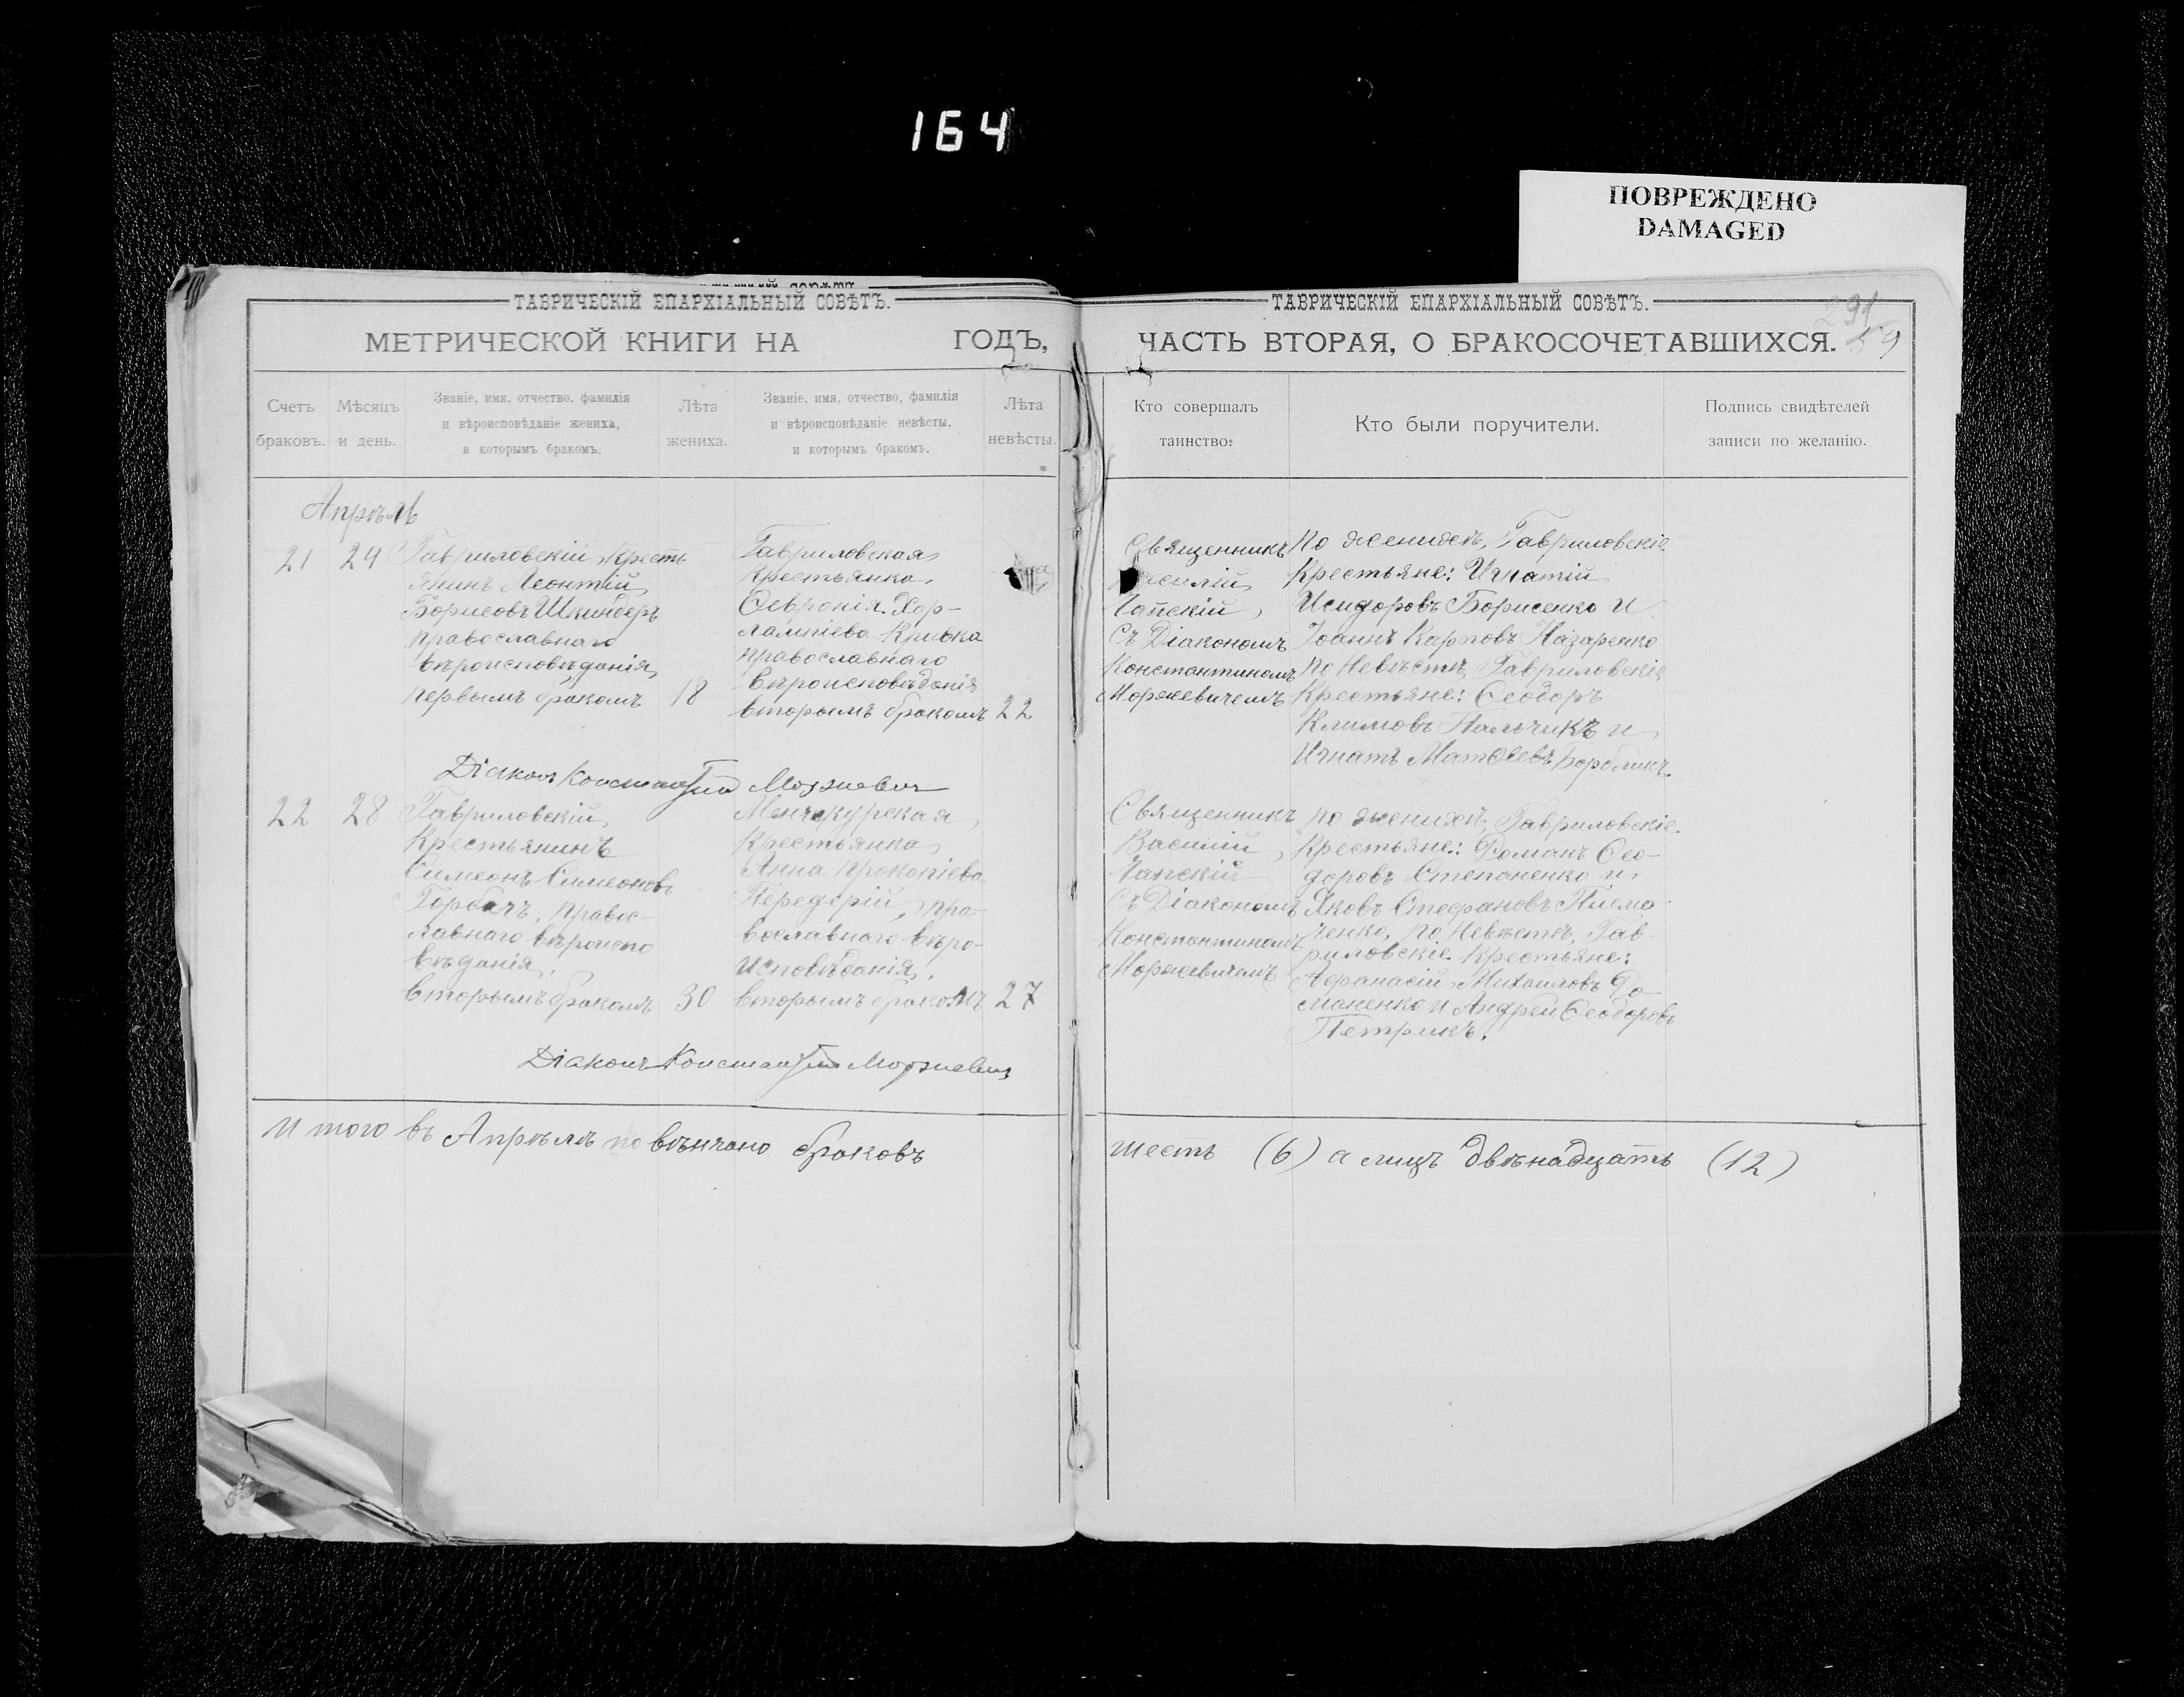 164
ПОВРЕЖДЕНО
DAMAGED
ТАВРИЧЕСКІЙ ЕПАРХІАЛЬНЫЙ СОВѢТЪ.
МЕТРИЧЕСКОЙ КНИГИ НА ГОДЪ,
Счетъ браковъ.
Мѣсяцъ и день.
Званіе, имя, отчество, фамилія
и вѣроисповѣданіе жениха,
и которымъ бракомъ.
Лѣта жениха.
Званіе, имя, отчество, фамилія
и вѣроисповѣданіе невѣсты,
и которымъ бракомъ.
Лѣта невѣсты.
Апрѣль
21
24
Гавриловскій Кресть
янинъ Леонтій
Борисовъ Шкиндеръ
православнаго
вѣроисповѣданія,
первымъ бракомъ
18
Гавриловская
крестьянка
Ѳевронія Хар-
лампіева Кривка
православнаго
вѣроисповѣданія
вторымъ бракомъ
22
Діаконъ Константинъ Моржевич
22
28
Гавриловскій
Крестьянинъ
Симеонъ Симеоновъ
Горбачъ, правос-
лавнаго вѣроиспо
вѣданія,
вторымъ бракомъ
30
крестьянка
Анна Прокопіева
Передерій, пра-
вославнаго вѣро-
исповѣданія,
вторымъ бракомъ
27
Діаконъ Константинъ Моржевич
Итого въ Апрѣлѣ повѣнчано браковъ
ТАВРИЧЕСКІЙ ЕПАРХІАЛЬНЫЙ СОВѢТЪ.
291
59
ЧАСТЬ ВТОРАЯ, О БРАКОСОЧЕТАВШИХСЯ.
Кто совершалъ
таинство:
Кто были поручители.
Подпись свидѣтелей
записи по желанію.
Священникъ
силій
Чапскій,
съ Діакономъ
Константиномъ
Моржевичемъ
По женихѣ, Гавриловскіе
крестьяне: Игнатій
Исидоровъ Борисенко и
Іоаннъ Карповъ Назаренко
по невѣстѣ, Гавриловскіе
Крестьяне: Ѳеодоръ
Климовъ Пальчикъ и
Игнатъ Матѳеевъ
Священникъ
Василій
Чапскій
съ Діакономъ
Константиномъ
Моржевичемъ
по женихѣ, Гавриловскіе
Крестьяне: Романъ Ѳео-
доровъ Степаненко и
Яковъ Стефановъ Писма
ченко, по невѣстѣ, Гав-
риловскіе крестьяне:
Афанасій Михайловъ Ро-
маненко и Андрей Ѳеодоровъ
Петрикъ.
шесть (6) а лицъ двѣнадцать (12)